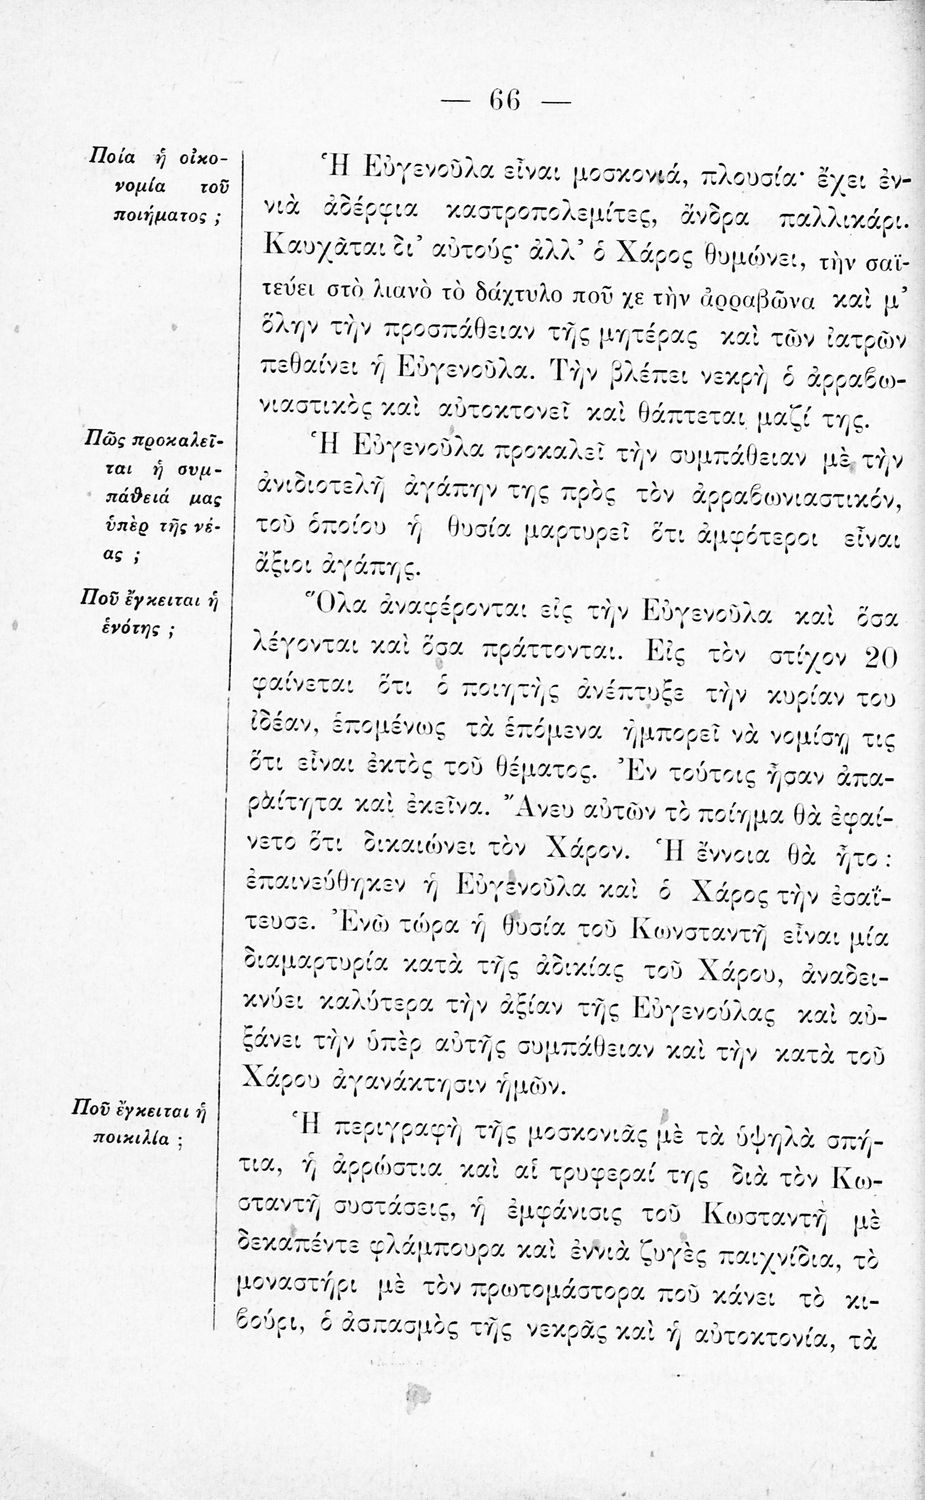 — 66 —
Ποία ἡ οἰκο-
νομία τοῦ
ποιήματος ;
Ἡ Εὐγενοῦλα εἶναι μοσκονιά, πλουσία· ἔχει ἐν-
νιὰ ἀδέρφια καστροπολεμίτες, ἄνδρα παλλικάρι.
Καυχᾶται δι’ αὐτούς· ἀλλ’ ὁ Χάρος θυμώνει, τὴν σαϊ-
τεύει στὸ λιανὸ τὸ δάχτυλο ποῦ χε τὴν ἀρραβῶνα καὶ μ’
ὅλην τὴν προσπάθειαν τῆς μητέρας καὶ τῶν ἰατρῶν
πεθαίνει ἡ Εὐγενοῦλα. Τὴν βλέπει νεκρὴ ὁ ἀρραβω-
νιαστικὸς καὶ αὐτοκτονεῖ καὶ θάπτεται μαζί της.
Πῶς προκαλεῖ-
ται ἡ συμ-
πάθειά μας
ὑπὲρ τῆς νέ-
ας ;
Ἡ Εὐγενοῦλα προκαλεῖ τὴν συμπάθειαν μὲ τὴν
ἀνιδιοτελῆ ἀγάπην της πρὸς τὸν ἀρραβωνιαστικόν,
τοῦ ὁποίου ἡ θυσία μαρτυρεῖ ὅτι ἀμφότεροι εἶναι
ἄξιοι ἀγάπης.
Ποῦ ἔγκειται ἡ
ἑνότης ;
Ὅλα ἀναφέρονται εἰς τὴν Εὐγενοῦλα καὶ ὅσα
λέγονται καὶ ὅσα πράττονται. Εἰς τὸν στίχον 20
φαίνεται ὅτι ὁ ποιητὴς ἀνέπτυξε τὴν κυρίαν του
ἰδέαν, ἑπομένως τὰ ἑπόμενα ἠμπορεῖ νὰ νομίσῃ τις
ὅτι εἶναι ἐκτὸς τοῦ θέματος. Ἐν τούτοις ἦσαν ἀπα-
ραίτητα καὶ ἐκεῖνα. Ἄνευ αὐτῶν τὸ ποίημα θὰ ἐφαί-
νετο ὅτι δικαιώνει τὸν Χάρον. Ἡ ἔννοια θὰ ἦτο :
ἐπαινεύθηκεν ἡ Εὐγενοῦλα καὶ ὁ Χάρος τὴν ἐσαΐ-
τευσε. Ἐνῶ τώρα ἡ θυσία τοῦ Κωνσταντῆ εἶναι μία
διαμαρτυρία κατὰ τῆς ἀδικίας τοῦ Χάρου, ἀναδει-
κνύει καλύτερα τὴν ἀξίαν τῆς Εὐγενούλας καὶ αὐ-
ξάνει τὴν ὑπὲρ αὐτῆς συμπάθειαν καὶ τὴν κατὰ τοῦ
Χάρου ἀγανάκτησιν ἡμῶν.
Ποῦ ἔγκειται ἡ
ποικιλία ;
Ἡ περιγραφὴ τῆς μοσκονιᾶς μὲ τὰ ὑψηλὰ σπή-
τια, ἡ ἀρρώστια καὶ αἱ τρυφεραί της διὰ τὸν Κω-
σταντῆ συστάσεις, ἡ ἐμφάνισις τοῦ Κωσταντῆ μὲ
δεκαπέντε φλάμπουρα καὶ ἐννιὰ ζυγὲς παιχνίδια, τὸ
μοναστήρι μὲ τὸν πρωτομάστορα ποῦ κάνει τὸ κι-
βούρι, ὁ ἀσπασμὸς τῆς νεκρᾶς καὶ ἡ αὐτοκτονία, τὰ